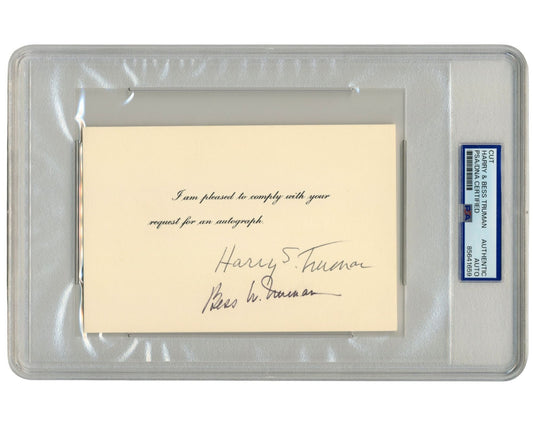 I am pleased to comply with your
request for an autograph.
Harry S. Truman
Bess W. Truman
CUT
HARRY & BESS TRUMAN
PSA/DNA CERTIFIED
PSA
AUTHENTIC
AUTO
85641659